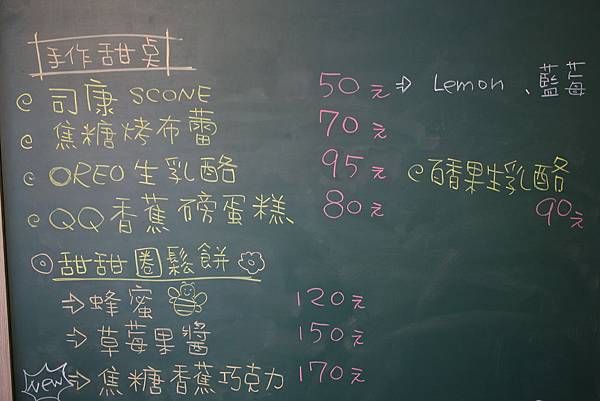 手作甜桌
司康 SCONE 50元 ⇒ Lemon、藍莓
焦糖烤布蕾 70元
OREO生乳酪 95元
百香果生乳酪 90元
QQ香蕉磅蛋糕 80元
甜甜圈鬆餅
⇒蜂蜜 120元
⇒草莓果醬 150元
NEW ⇒焦糖香蕉巧克力 170元